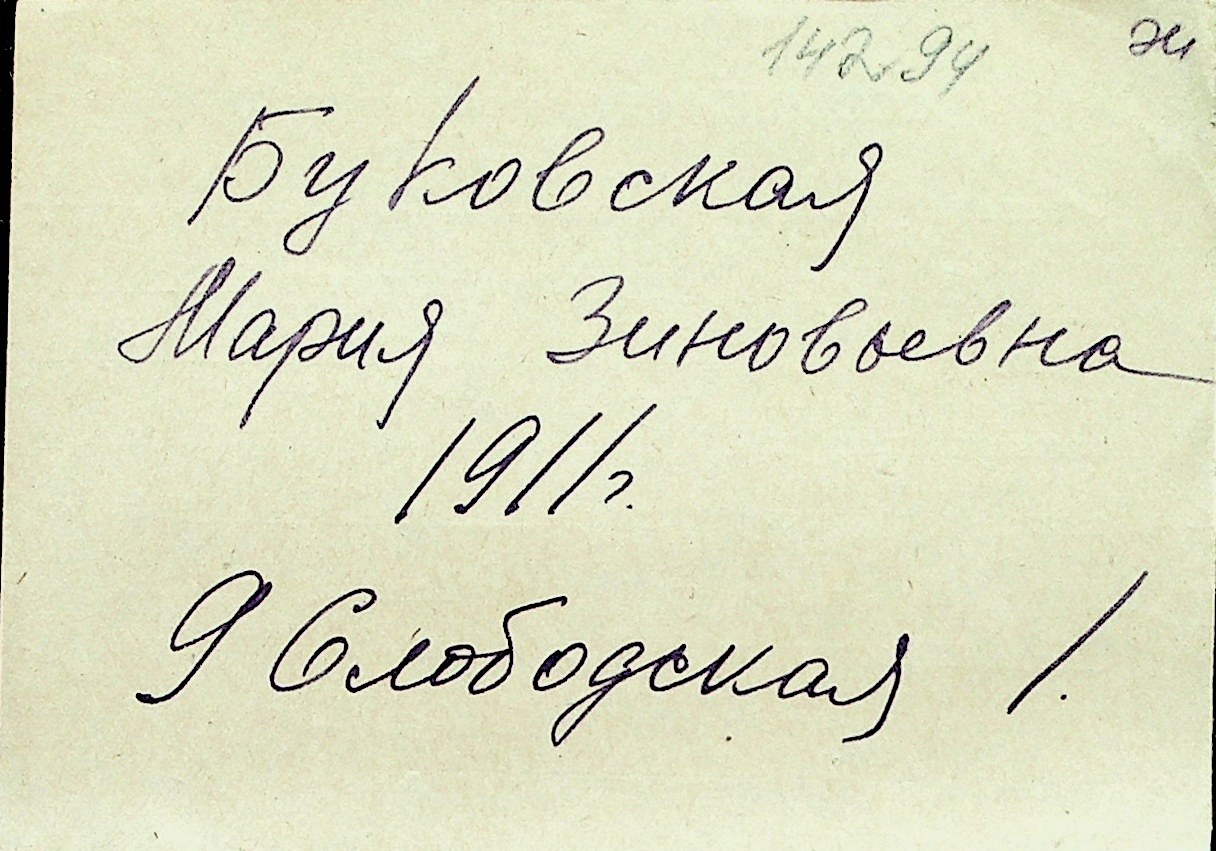 14294 ж
Буковская
Мария Зиновьевна
1911г.
9 Слободская 1.